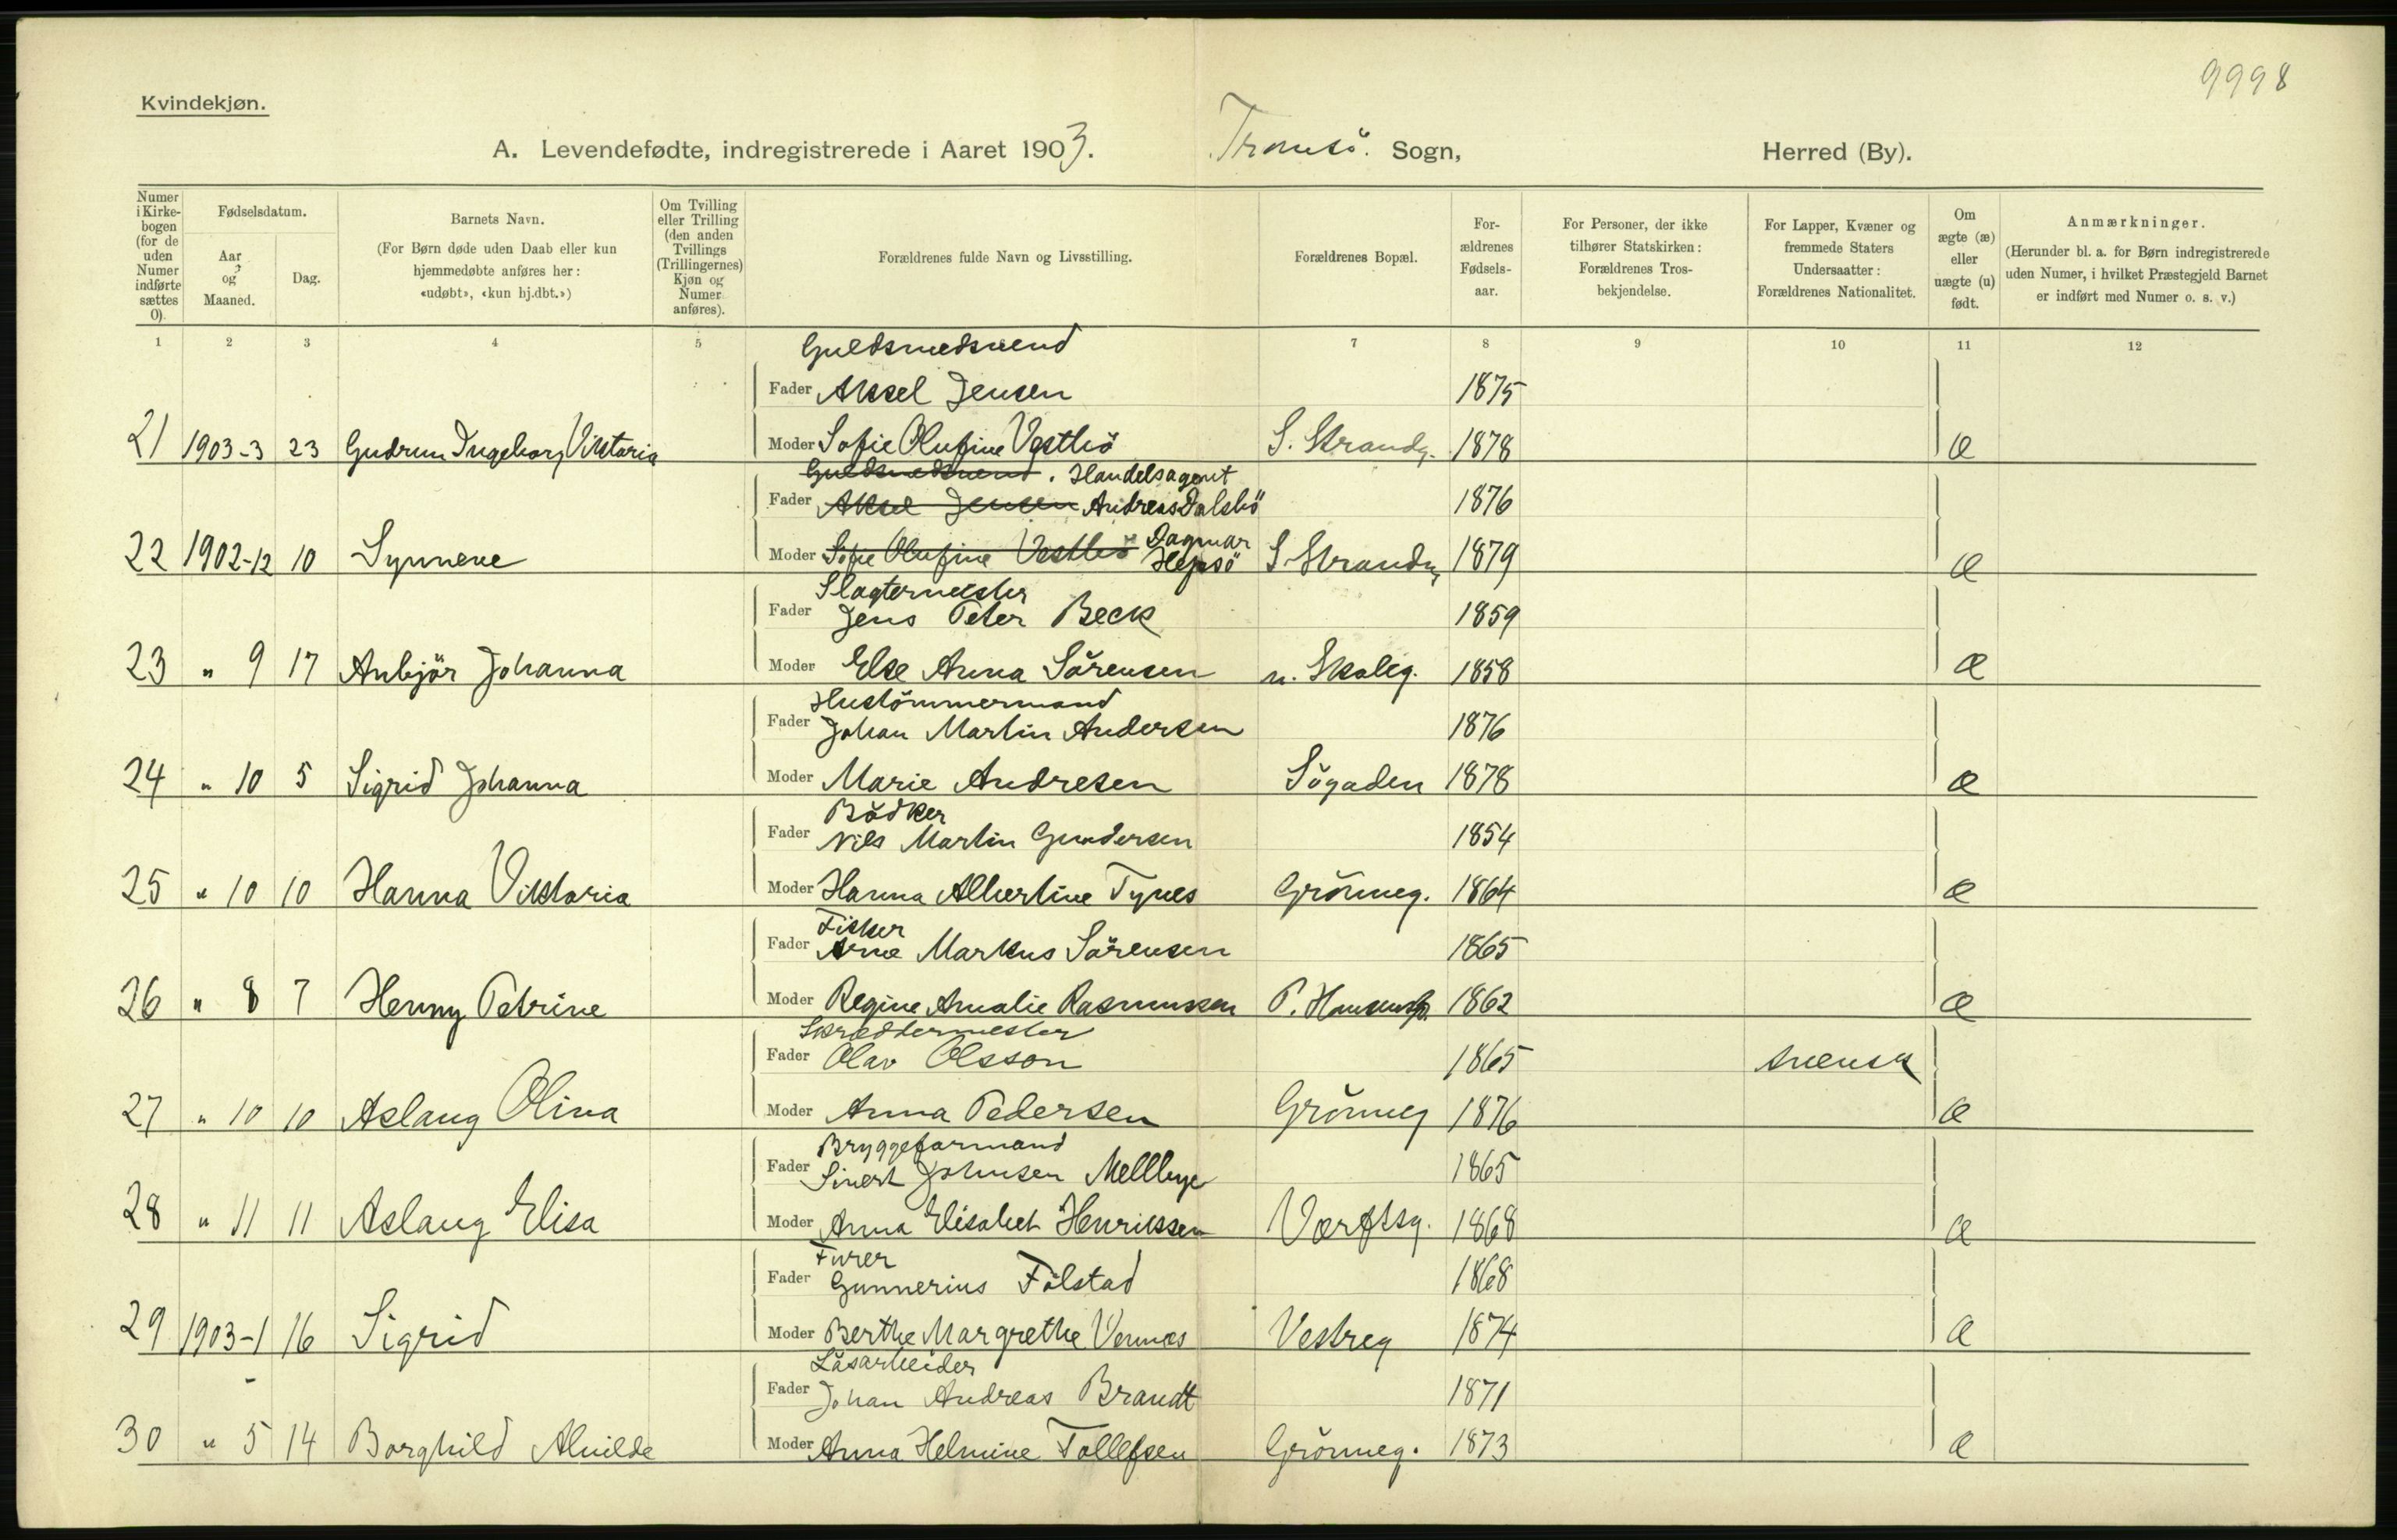 9998
Kvindekjøn.
A. Levendefødte, indregistrerede i Aaret 1903. Tromsö. Sogn, Herred (By).
Numer i Kirkebogen (for de uden Numer indførte sættes 0).
Fødselsdatum.
Aar og Maaned.
Dag.
Barnets Navn.
(For Børn døde uden Daab eller kun hjemmedøbte anføres her: «udøbt», «kun hj.dbt.»)
Om Tvilling eller Trilling (den anden Tvillings (Trillingernes) Kjøn og Numer anføres).
Forældrenes fulde Navn og Livsstilling.
Forældrenes Bopæl.
Forældrenes Fødselsaar.
For Personer, der ikke tilhører Statskirken: Forældrenes Trosbekjendelse.
For Lapper, Kvæner og fremmede Staters Undersaatter: Forældrenes Nationalitet.
Om ægte (æ) eller uægte (u) født.
Anmærkninger.
(Herunder bl. a. for Børn indregistrerede uden Numer, i hvilket Præstegjeld Barnet er indført med Numer o. s. v.)
1 2 3 4 5 7 8 9 10 11 12
Guldsmedsvend
Fader Aksel Jensen 1875
21 1903-3 23 Gudrun Ingeborg Viktoria Moder Sofie Olufine Vestbö S. Strandg. 1878 æ
Guldsmedsvend. Handelsagent
Fader Aksel Jensen Andreas Dalsbö 1876
22 1902-12 10 Synneve Moder Sofie Olufine Vestbö Dagmar Hepsö S Strandg 1879 æ
Slagtermester
Fader Jens Peter Beck 1859
23 " 9 17 Anbjör Johanna Moder Else Anna Sörensen n. Skoleg. 1858 æ
Hustömmermand
Fader Johan Martin Andersen 1876
24 " 10 5 Sigrid Johanna Moder Marie Andresen Sögaden 1878 æ
Bödker
Fader Nils Martin Gundersen 1854
25 " 10 10 Hanna Viktoria Moder Hanna Albertine Tynes Grönneg. 1864 æ
Fisker
Fader Arne Markus Sörensen 1865
26 " 8 7 Henny Petrine Moder Regine Amalie Rasmussen P. Hansensg. 1862 æ
Skreddermester
Fader Olav Olsson 1865 svensk
27 " 10 10 Aslaug Olina Moder Anna Pedersen Grönneg 1876 æ
Bryggeformand
Fader Sivert Johnsen Mellbye 1865
28 " 11 11 Aslaug Elisa Moder Anna Elisabet Henrikssen Værftsg. 1868 æ
Furer
Fader Gunnerius Fölstad 1868
29 1903-1 16 Sigrid Moder Berthe Margrethe Vennes Vestreg 1874 æ
Låsarbeider
Fader Johan Andreas Brandt 1871
30 " 5 14 Borghild Alvilde Moder Anna Helmine Tollefsen Grönneg. 1873 æ